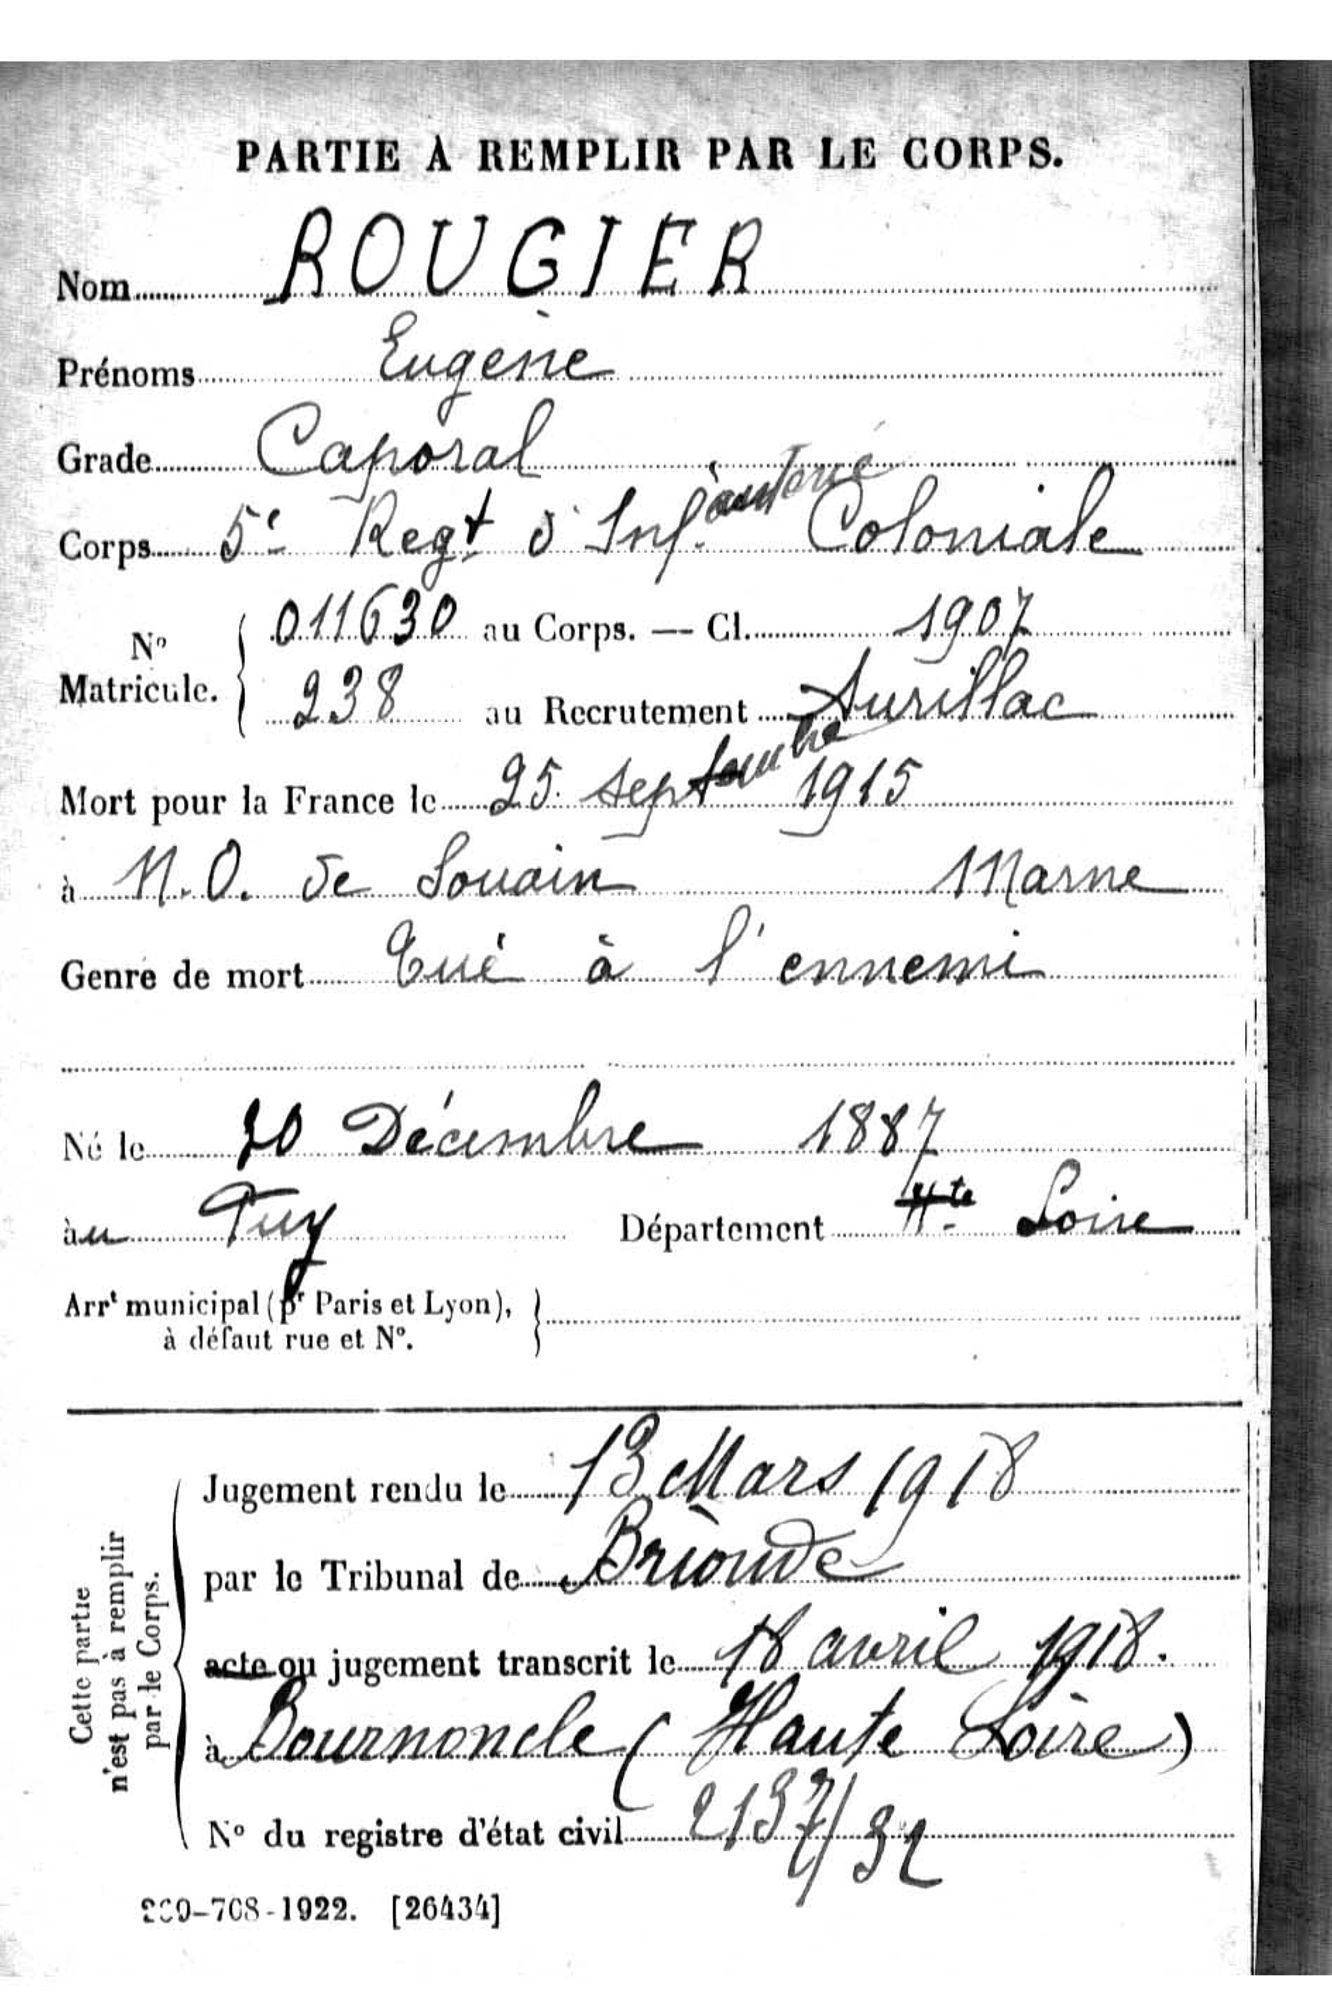 PARTIE À REMPLIR PAR LE CORPS.
Nom ROUGIER
Prénoms Eugène
Grade Caporal
Corps 5e Regt d'Infanterie Coloniale
No Matricule. 011630 au Corps. — Cl. 1907
238 au Recrutement Aurillac
Mort pour la France le 25 septembre 1915
à N.O. de Souain Marne
Genre de mort Tué à l'ennemi
Né le 20 Décembre 1887
àu Puy Département Hte Loire
Arrt municipal (pr Paris et Lyon),
à défaut rue et No.
Cette partie
n'est pas à remplir
par le Corps.
Jugement rendu le 13 Mars 1918
par le Tribunal de Brioude
acte ou jugement transcrit le 18 avril 1918.
à Bournoncle (Haute Loire)
No du registre d'état civil 2137/32
-708-1922. [26434]